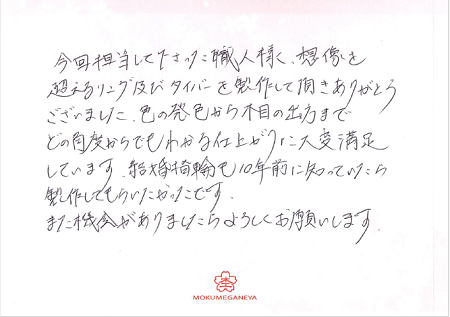 今回担当して下さった職人様へ、想像を
超えるリング及びタイバーを製作して頂きありがとう
ございました。色の発色から木目の出方まで
どの角度からでもわかる仕上がりに大変満足
しています。結婚指輪も10年前に知っていたら
製作してもらいたかったです。
また機会がありましたらよろしくお願いします。
杢
MOKUMEGANEYA